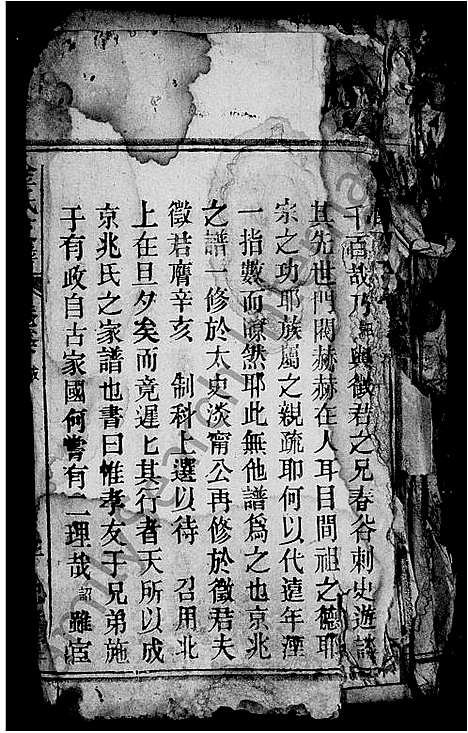 千百哉乃詔與徵君之兄春谷刺史遊談
其先世門閥赫赫在人耳目間祖之德耶
宗之功耶族屬之親疏耶何以代遠年湮
一指數而瞭然耶此無他譜為之也京兆
之譜一修於太史淡甯公再修於徵君夫
徵君膺辛亥　制科上選以待　召用北
上在旦夕矣而竟遲匕其行者天所以成
京兆氏之家譜也書曰惟孝友于兄弟施
于有政自古家國何嘗有二理哉詔雖宦